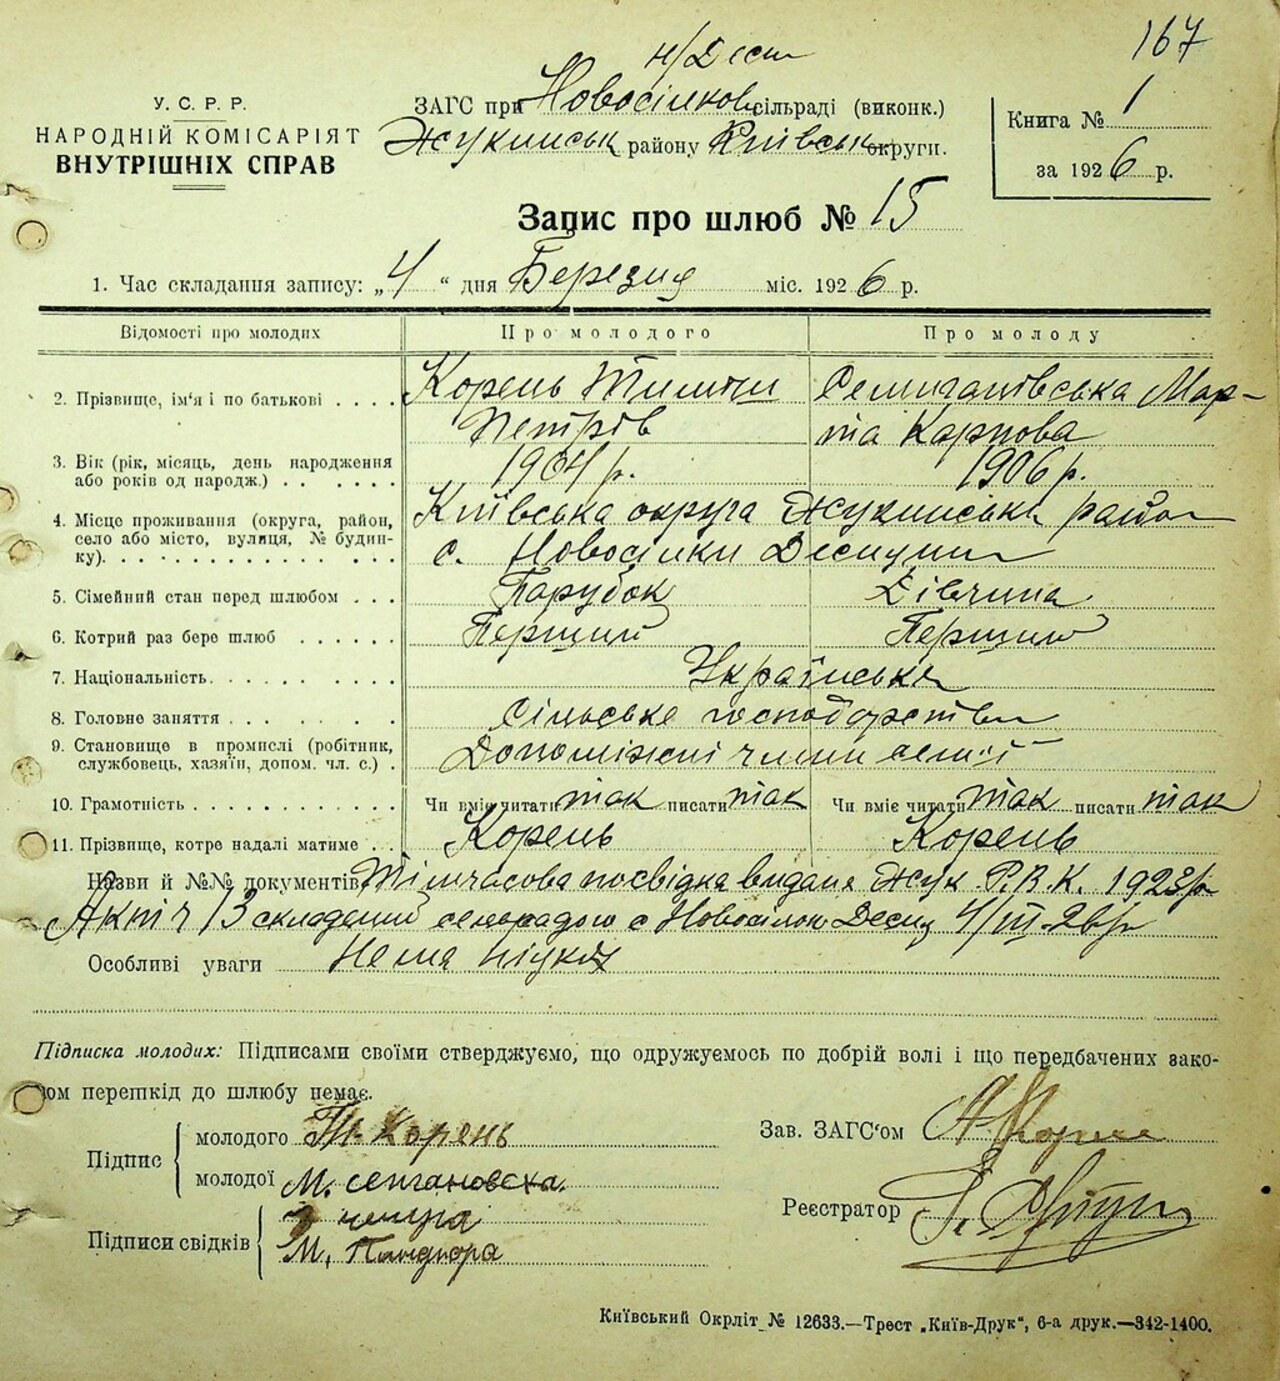 167
н/Десн
У. С. Р. Р.
НАРОДНІЙ КОМІСАРІЯТ
ВНУТРІШНІХ СПРАВ
ЗАГС при Новосілков сільраді (виконк.)
Жукинськ району Київськ округи.
Книга № 1
за 1926 р.
Запис про шлюб № 15
1. Час складання запису: „4“ дня Березня міс. 1926 р.
Відомості про молодих Про молодого Про молоду
2. Прізвище, ім'я і по батькові . . . . Корень Тиміш Петрів
Мар-та Карпова
3. Вік (рік, місяць, день народження або років од народж.) . . . . . . 1904 р. 1906 р.
4. Місце проживання (округа, район, село або місто, вулиця, № будинку). Київська округа Жукинськи район
с. Новосілки Десн
5. Сімейний стан перед шлюбом . . . Парубок Дівчина
6. Котрий раз бере шлюб . . . . . . Перший Перший
7. Національність. . . . . . . . . . Українська
8. Головне заняття . . . . . . . Сільське господарство
9. Становище в промислі (робітник, службовець, хазяїн, допом. чл. с.) . Допоміжні члени семії
10. Грамотність . . . . . . . . . . . Чи вміє читати так писати так Чи вміє читати так писати так
11. Прізвище, котре надалі матиме . . Корень Корень
Назви й №№ документів Тімчасова посвідка видане Жук. Р.В.К. 192 р
Акт ч 13 складений сельрадою с Новосілок Десн 4/III-26 р
Особливі уваги Нема ніяких
Підписка молодих: Підписами своїми стверджуємо, що одружуємось по добрій волі і що передбачених зако-
ном перешкід до шлюбу немає.
Підпис молодого Ти. Корень
молодої М.
Зав. ЗАГС'ом
Реєстратор
Підписи свідків
М.
Київський Окрліт № 12633.—Трест „Київ-Друк“, 6-а друк.—342-1400.